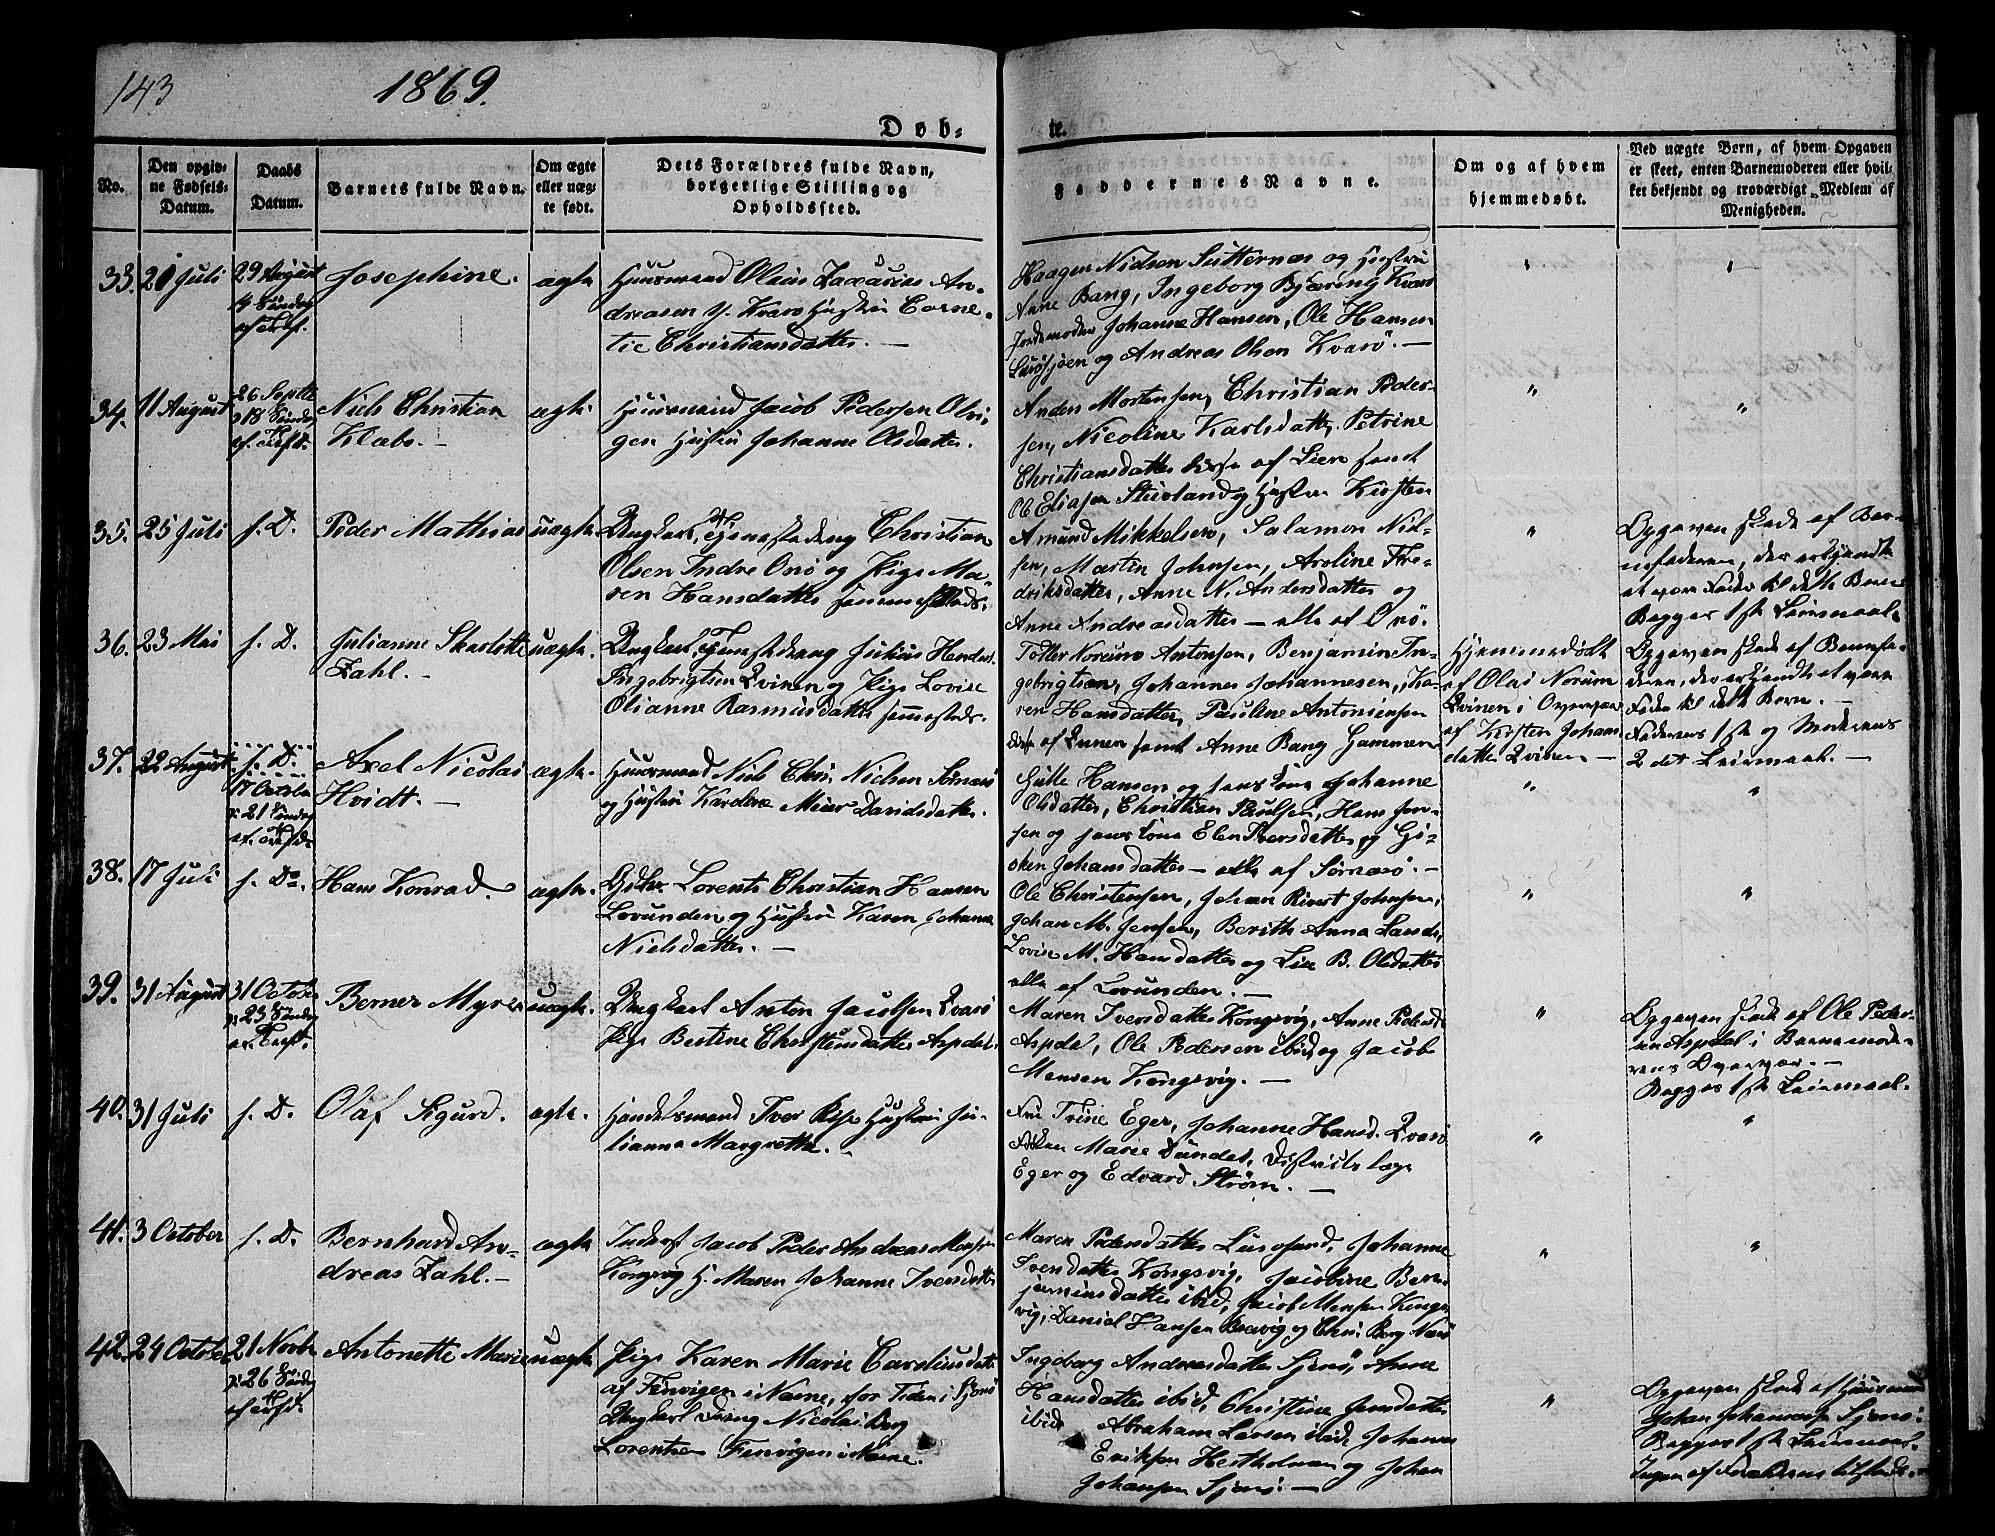 143
1869.
Døb-
te.
No.
Den opgiv-
ne Fødsels-
Datum.
Daabs
Datum.
Barnets fulde Navn.
Om ægte
eller uæg-
te født.
Dets Forældres fulde Navn,
borgerlige Stilling og
Opholdssted.
Faddernes Navne.
Om og af hvem
hjemmedøbt.
Ved uægte Børn, af hvem Opgaven
er skeet, enten Barnemoderen eller hvil-
ket bekjendt og troværdigt Medlem af
Menigheden.
33.
Juli
29 August
Josephine.
ægte
Huusmand Olaus Zaxarias An-
dreasen Kvarø Hustru Corne-
lie Christiansdatter. —
Haagen Nielsen Sutternæs og Hustru
Anne Bang, Ingeborg Bjæring Kvarø
Jordemoder Johanne Hansen, Ole Hansen
og Andreas Olsen Kvarø. —
34.
11 August
26 Septbr
18 Søndag
Niels Christian
Klæbo. —
ægte
Huusmand Jacob Pedersen
Hustru Johanne Olsdatter.
Anders Mortensen, Christian Peder-
sen, Nicoline Karlsdatter, Petrine
Christiansdatter
Ole Eliasen Stuvland og Hustru Kirsten
35.
25 Juli
s. D.
Peder Mathias
uægte
Ungkarl, Tjenestedreng Christian
Olsen Indre Onø og Pige Ma-
ren Hansdatter sammesteds.
Amund Mikkelsen, Salamon Niel-
sen, Martin Johnsen, Aroline Fre-
driksdatter, Anne N. Andersdatter og
Anne Andreasdatter — alle af Onø.
Opgaven skede af Bar-
nefaderen, der erkjendte
at være Fader til dette Barn
Begges 1ste Leiermaal.
36.
23 Mai
s. D.
Julianne Skarlotte
Zahl. —
uægte.
Ungkarl, Tjenestedreng Julius
Ingebrigtsen Qvinen og Pige Lovise
Olianne Rasmusdatter sammesteds.
Norum Antonsen, Benjamin In-
gebrigtsen, Johannes Johannesen, Ka-
ren Hansdatter, Pauline Antonsen
samt Anne Bang Hammer
Hjemmedøbt
af Olai Norum
Qvinen i Overvær
af Kirsten Johans
datter Qvinen —
Opgaven skede af Barnefa-
deren, der erkjendte at være
Fader til dette Barn. —
Faderens 1ste og Moderens
2det Leiermaal. —
37.
22 August
s. D.
17 October
21 Søndag
Axel Nicolai
Hvidt. —
ægte.
Huusmand Niels Chri. Nielsen Sørnæsø
og Hustru Davidsdatter.
Hansen og hans Kone Johanne
Olsdatter, Christian Paulsen, Hans Jen-
sen og hans Kone Elen Iversdatter og Gi-
sken Johansdatter — alle af Sørnæsø. —
38.
17 Juli
s. Do.
Hans Konrad.
ægte.
Lorents Christian Hansen
Lovunden og Hustru Karen Johanna
Nielsdatter. —
Ole Christensen, Johan Rivert Johnsen,
Johan M. Jensen, Berith Anna Larsd.,
Lovise M. Hansdatter og Lise B. Olsdatter
alle af Lovunden. —
39.
31 August
31 October
23 Søndag
Berner Myre
uægte.
Ungkarl Anton Jacobsen Qvarø
Pige Bertine Christensdatter Aspdal.
Maren Iversdatter Kongsvig, Anne Pedersd.
Aspdal, Ole Pedersen ibid. og Jacob
Monsen Kongsvig. —
Opgaven skede af Ole Peder-
sen Aspdal i Barnemode-
rens Overvær. —
Begges 1ste Leiermaal.
40.
31 Juli
s. D.
Olaf Sigurd.
ægte.
Handelsmand Iver Hustru Ju-
lianna Margrethe.
Fru Trine Eger, Johanne Hansd. Qvarø
Frøken Marie Dundas, Districtslæge
Eger og Edvard Strøm. —
41.
3 October
s. D.
Bernhard An-
dreas Zahl. —
ægte
Inderst Jacob Peder Andreas Monsen
Kongsvig H. Maren Johanne Iversdatter
Maren Pedersdatter Lurosund, Johanne
Iversdatter Kongsvig, Jacobine Ben-
jaminsdatter ibid, Jacob Monsen Kongs-
vig, Daniel Hansen Bravig og Chri. Berg Næsø
42.
24 October
21 Novbr
26 Søndag
Antonette Marie
uægte
Pige Karen Marie Carolinsdatter
af Finvigen i Næsne, for Tiden i Sjonø
Ungkarl Dreng Nicolai Berg
Lorentsen Finvigen i Næsne.
Ingeborg Andreasdatter Sjonø, Anne
Hansdatter ibid, Christine Jensdatter
ibid, Abraham Larsen ibid, Johannes
Eriksen Hestholmen og Johan
Johansen Sjonø. —
Opgaven skede af Huusmand
Johan Johansen Sjonø.
Begges 1ste Leiermaal.
Ingen af Forældrene tilstede. —